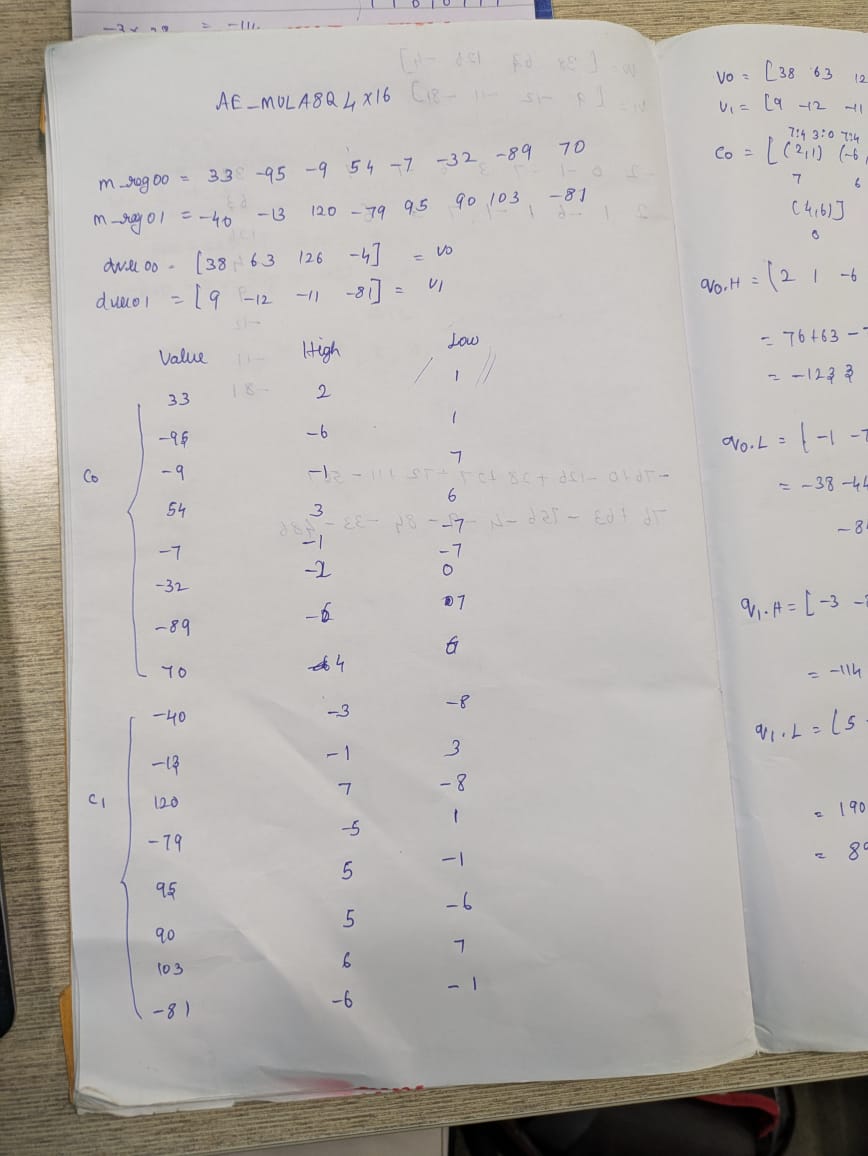 -3x = -114
AE_MULA8Q4X16
m_reg00 = 33 -95 -9 54 -7 -32 -89 70
m_reg01 = -40 -13 120 -79 95 90 103 -81
00 = [38 63 126 -4] = v0
01 = [9 -12 -11 -81] = v1
Value High Low
C0
33 2 1
-95 -6 1
-9 -1 7
54 3 6
-7
-7 -1 -7
-32 -2 0
-89 -6 7
70 4 6
C1
-40 -3 -8
-13 -1 3
120 7 -8
-79 -5 1
95 5 -1
90 5 -6
103 6 7
-81 -6 -1
V0 = [38 63 12
V1 = [9 -12 -11
7:4 3:0 7:4
C0 = [(2,1) (-6,
7 6
(4,6)]
q0.H = [2 1 -6
= 76+63 -
= -1233
q0.L = [-1 -7
= -38 -44
-8
q1.H = [-3 -
= -114
q1.L = [5
= 190
= 89